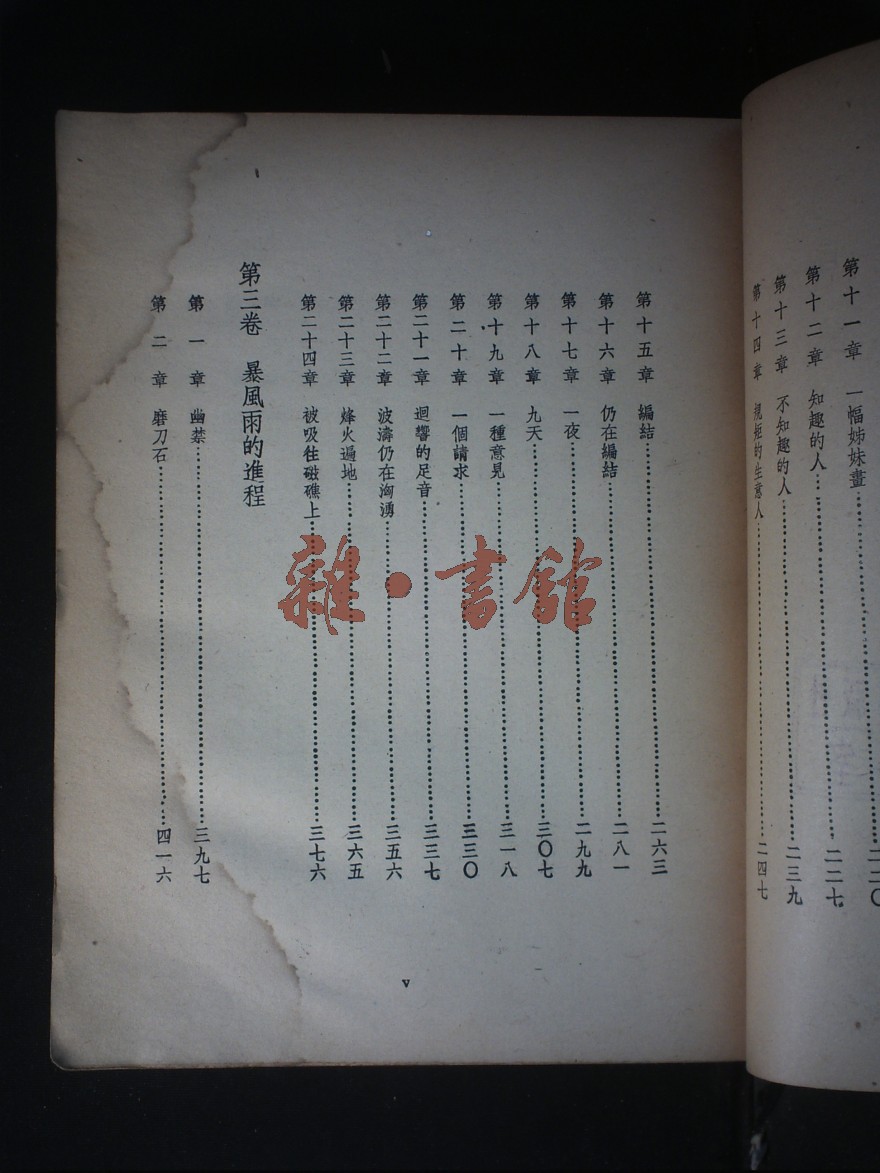 第十一章 一幅姊妹畫……二二〇
第十二章 知趣的人……二二七
第十三章 不知趣的人……二三九
第十四章 規矩的生意人……二四七
第十五章 編結……二六三
第十六章 仍在編結……二八一
第十七章 一夜……二九九
第十八章 九天……三〇七
第十九章 一種意見……三一八
第二十章 一個請求……三三〇
第二十一章 迴響的足音……三三七
第二十二章 波濤仍在洶湧……三五六
第二十三章 烽火遍地……三六五
第二十四章 被吸往磁礁上……三七六
第三卷 暴風雨的進程
第一章 幽禁……三九七
第二章 磨刀石……四一六
v
雜·書館